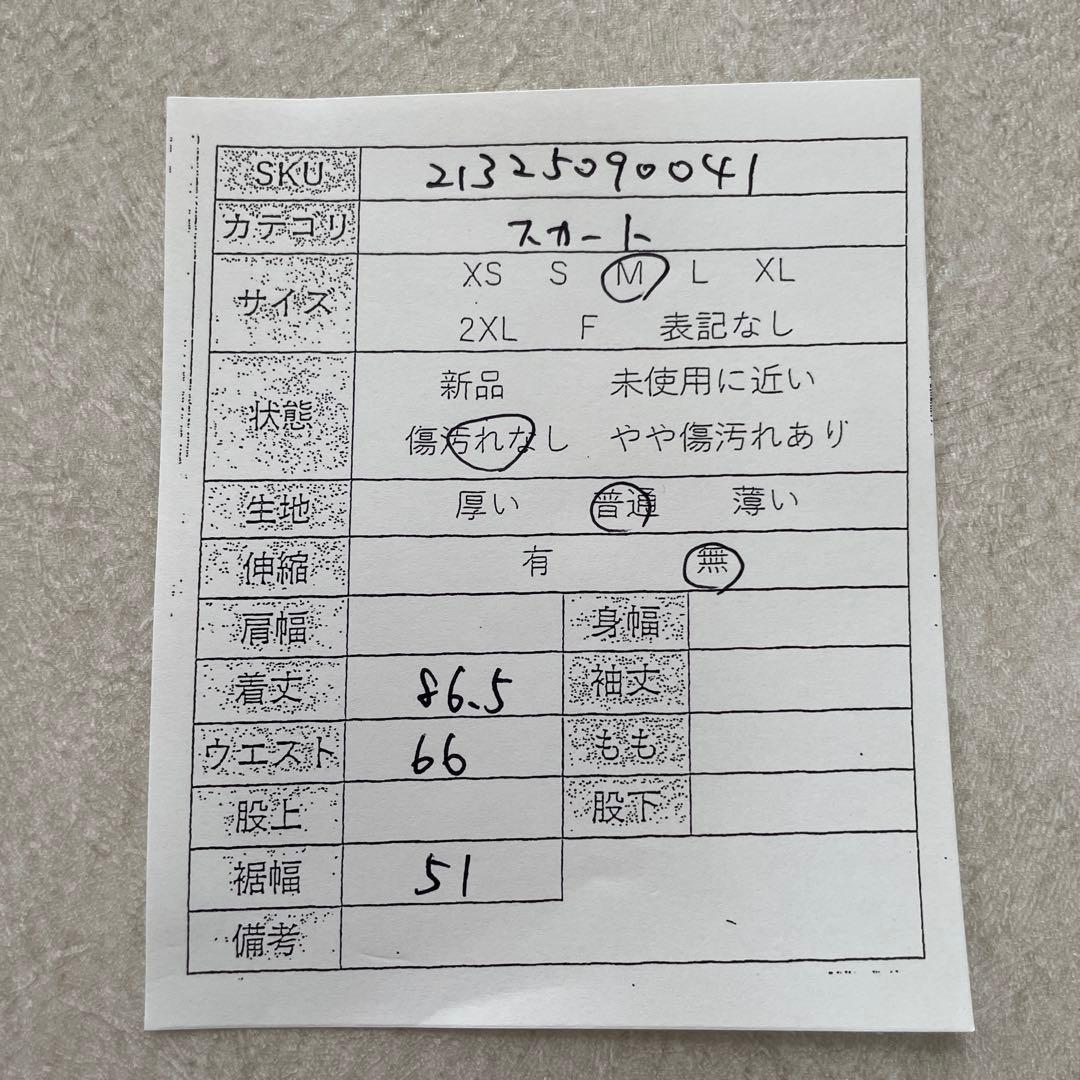 SKU 21325090041
カテゴリ スカート
サイズ XS S M L XL
2XL F 表記なし
状態 新品 未使用に近い
傷汚れなし やや傷汚れあり
生地 厚い 普通 薄い
伸縮 有 無
肩幅 身幅
着丈 86.5 袖丈
ウエスト 66 もも
股上 股下
裾幅 51
備考